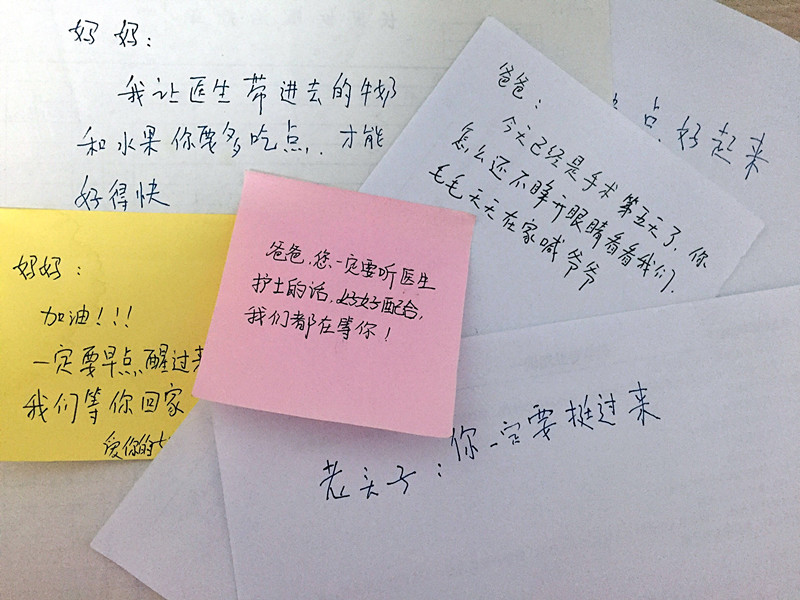 妈妈：
我让医生带进去的牛奶
和水果你要多吃点，才能
好得快
爸爸：
今天已经是手术第五天了，你
怎么还不睁开眼睛看看我们，
毛毛天天在家喊爷爷
点，好起来
妈妈：
加油！！！
一定要早点醒过来
我们等你回家
爱你的
爸爸，您一定要听医生
护士的话，好好配合，
我们都在等你！
老头子：你一定要挺过来